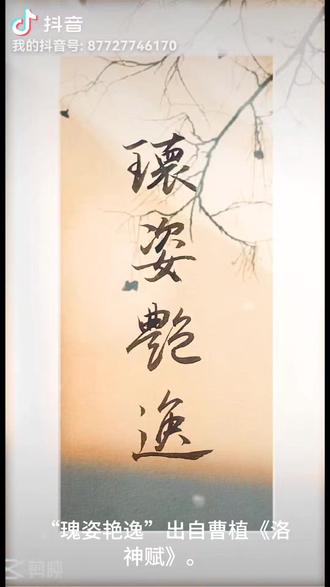 抖音
我的抖音号: 87727746170
瓌
姿
艷
逸
“瑰姿艳逸”出自曹植《洛
神赋》。
剪映